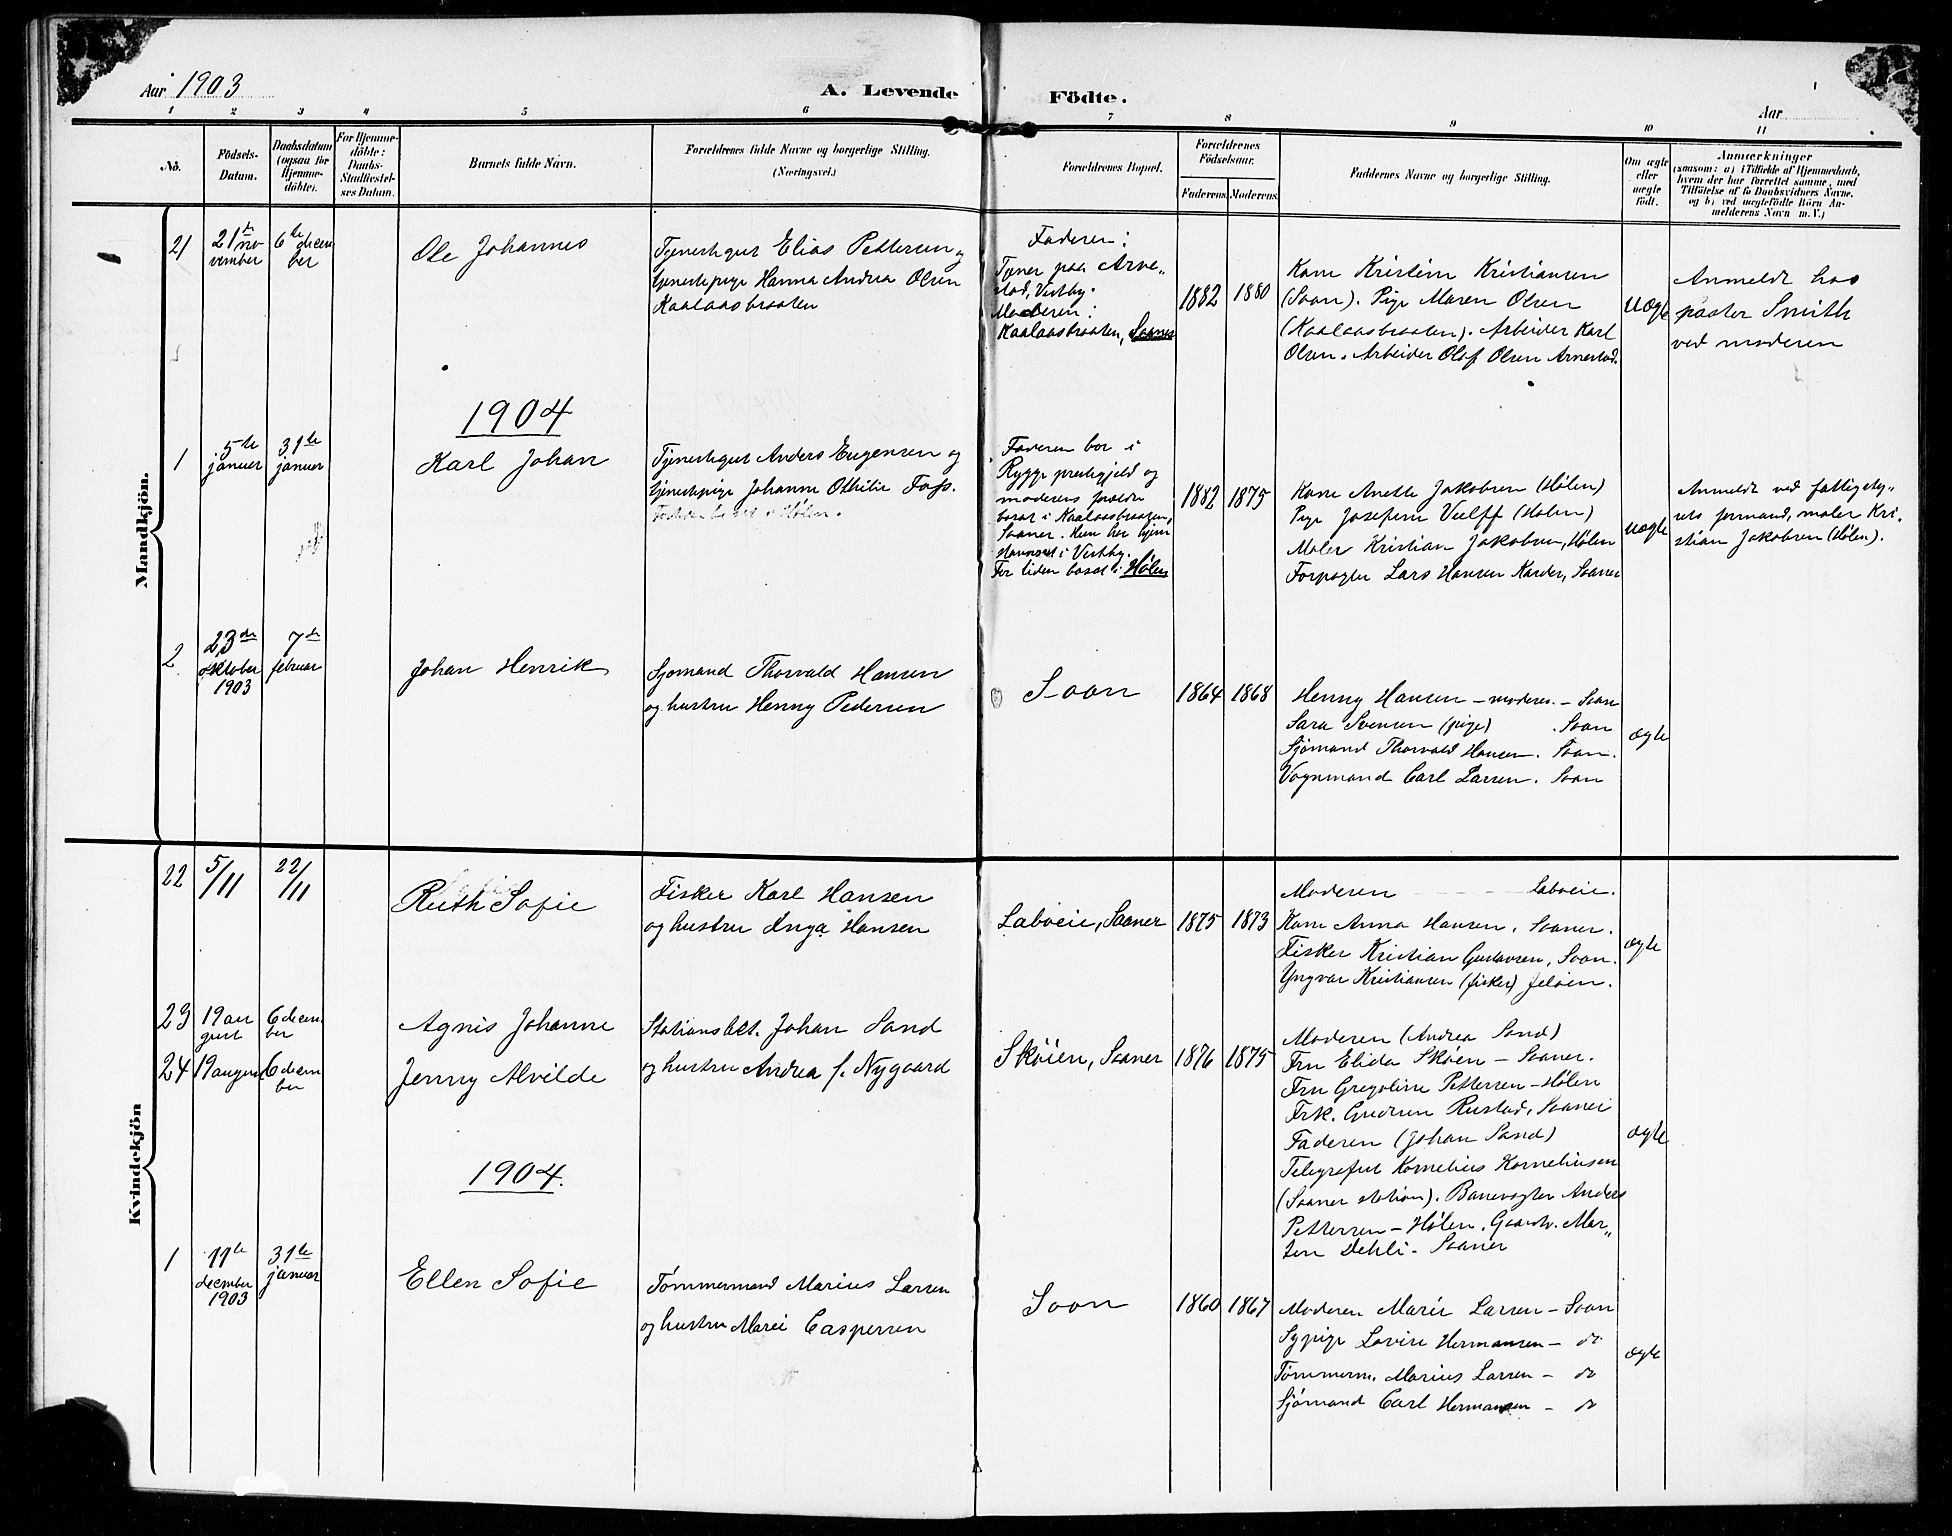 Aar 1903
A. Levende Födte.
Aar
1 2 3 4 5 6 7 8 9 10 11
No.
Födsels-
Datum.
Daabsdatum
(ogsaa for
Hjemme-
döbte).
For Hjemme-
döbte:
Daabs-
Stadfæstel-
ses Datum.
Barnets fulde Navn.
Forældrenes fulde Navne og borgerlige Stilling.
(Næringsvei.)
Forældrenes Bopæl.
Forældrenes
Födselsaar.
Faderens. Moderens.
Faddernes Navne og borgerlige Stilling.
Om ægte
eller
uægte
födt.
Anmærkninger
(saasom: a) i Tilfælde af Hjemmedaab,
hvem der har forrettet samme, med
Tilföielse af to Daabsvidners Navne,
og b) ved uægtefödte Börn An-
melderens Navn m. V.)
Mandkjön.
21
21de no-
vember
6te decem
ber
Ole Johannes
Tjenestegut Elias Pettersen og
tjenestepige Hanna Andrea Olsen
Kaalaasbraaten
Faderen:
Tjener paa Arne-
stad, Vestby.
Moderen:
Kaalaasbraaten, Saaner
1882
1880
Kone Kristine Kristiansen
(Soon). Pige Maren Olsen
(Kaalaasbraaten). Arbeider Karl
Olsen. Arbeider Olaf Olsen Arnestad.
uægte
Anmeldt hos
pastor Smith
ved moderen
1904
1
5te
januar
31te
januar
Karl Johan
Tjenestegut Anders Eugensen og
tjenestepige Johanne Othilie Foss.
Faderen bor i
Rygge prestegjeld og
moderens forældre
bosat i Kaalaasbraaten,
Saaner. Hun har hjem
stavnsret i Vestby.
For tiden bosat i Hølen
1882
1875
Kone Anette Jakobsen (Hølen)
Pige Josefine Wulff (Hølen)
Maler Kristian Jakobsen, Hølen
Forpagter Lars Hansen Karder, Saaner
uægte
Anmeldt ved fattigsty-
rets formand, maler Kri-
stian Jakobsen (Hølen).
2
23de
oktober
1903
7de
februar
Johan Henrik
Sjømand Thorvald Hansen
og hustru Henny Pedersen
Soon
1864
1868
Henny Hansen – moderen – Soon
Sara Svensen (pige) . Soon
Sjømand Thorvald Hansen. Soon.
Vognmand Carl Larsen. Soon
ægte
Kvindekjön
22
5/11
22/11
Ruth Sofie
Fisker Karl Hansen
og hustru Inga Hansen
Laboeie, Saaner
1875
1873
Moderen Laboeie.
Kone Anna Hansen, Saaner.
Fisker Kristian Gustavsen, Soon.
Yngvar Kristiansen (fisker) Jeløen.
ægte
23
19 au
gust
6 decem
ber
Agnis Johanne
Stationsbet. Johan Sand
24
19 august
6 decem
ber
Jenny Alvilde
og hustru Andrea f. Nygaard
Skøien, Saaner
1876
1875
Moderen (Andrea Sand)
Fru Elida Skøien – Saaner.
Fru Gregoline Pettersen – Hølen
Frk. Gudrun Rustad, Saaner
Faderen (Johan Sand)
Telegrafist Kornelius Korneliussen
(Saaner station). Banevogter Anders
Pettersen – Hølen. Gaardb. Mar-
ten Dehli – Saaner
ægte
1904.
1
11te
december
1903
31te
januar
Ellen Sofie
Tømmermand Marius Larsen
og hustru Marie Caspersen
Soon
1860
1867
Moderen Marie Larsen – Soon
Sypige Lovise Hermansen – do
Tømmerm. Marius Larsen – do
Sjømand Carl Hermansen – do
ægte